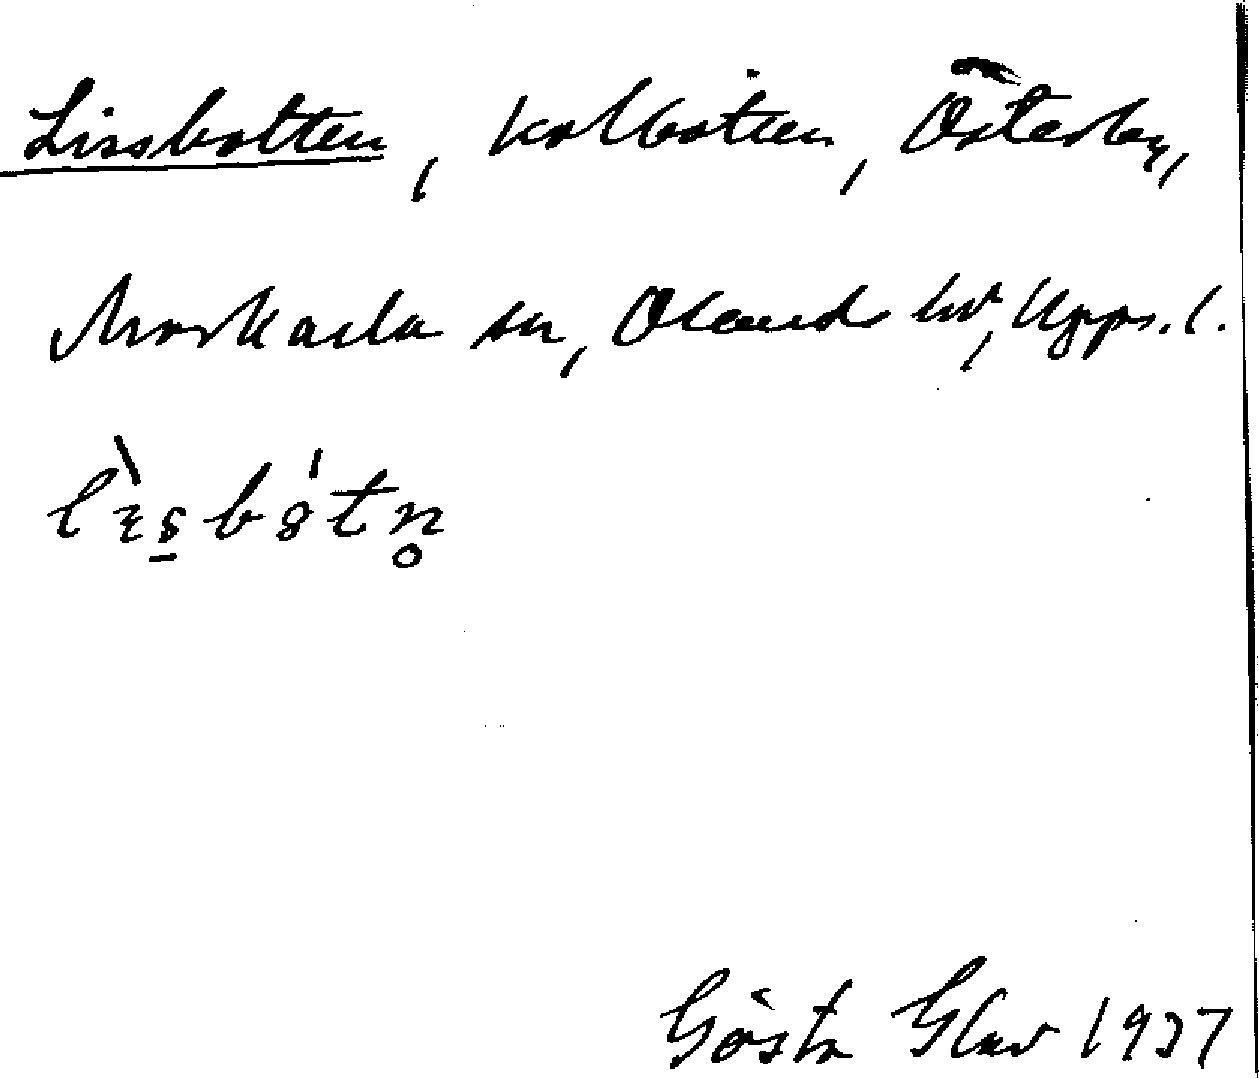 Lissbotten, kolbotten, Österby,
Morkarla sn, Olands hd, Upps. l.
Gösta Glav 1937